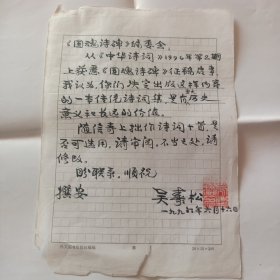 《国魂诗碑》编委会：
从《中华诗词》1996年第2期
上获悉《国魂诗碑》征稿启事
我认为，你们决定出版这样的
的一书传统诗词集，是有历史
意义和教育的价值。
随信寄上拙作诗词十首，是
否可选用，请审阅，不当之处，请
修改。
盼联系。顺祝
撰安
吴寿松
一九九六年六月十六日